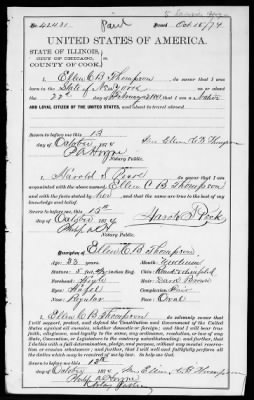 No 42431 Paid Issued Oct 16/74
UNITED STATES OF AMERICA.
STATE OF ILLINOIS,
CITY OF CHICAGO,
COUNTY OF COOK.
I, Ellen C B Thompson do swear that I was
born in the State of New York on or about
the 22d day of February that I am a Native
AND LOYAL CITIZEN OF THE UNITED STATES, and about to travel
abroad.
Sworn to before me this 13
day of October 1874 Mrs Ellen C B Thompson
Notary Public.
I, Harold S Peck do swear that I am
acquainted with the above named Ellen C B Thompson and
with the facts stated by her and that the same are true to the best of my
knowledge and belief.
Sworn to before me this 13th
day of October 1874 Harold S Peck
Notary Public.
Description of Ellen C B Thompson
Age: 33 years Mouth: Medium
Stature: 5 Chin:
Forehead: High Hair: Dark Brown
Eyes: Hazel Complexion: Fair
Nose: Regular Face: Oval
I, Ellen C B Thompson do solemnly swear that I
will support, protect, and defend the Constitution and Government of the United States
against all enemies, whether domestic or foreign; and that I will bear true
faith, allegiance, and loyalty to the same, any ordinance, resolution or law of any
State, Convention, or Legislature to the contrary notwithstanding; and further, that
I do this with a full determination, pledge, and purpose, without any mental reservation
or evasion whatsoever; and further, that I will well and faithfully perform all the
duties which may be required of me by law. So help me God.
Sworn to before me this 13th
day of October 1874 Mrs Ellen C B Thompson
Notary Public